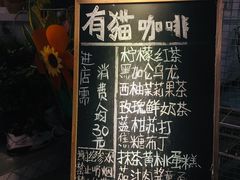 有猫咖啡
进店需
消费人均30元
禁止吸烟
柠檬红茶
黑加仑乌龙
西柚茉莉果茶
玫瑰鲜奶茶
荔枝苏打
焦糖布丁
抹茶黄桃蛋糕